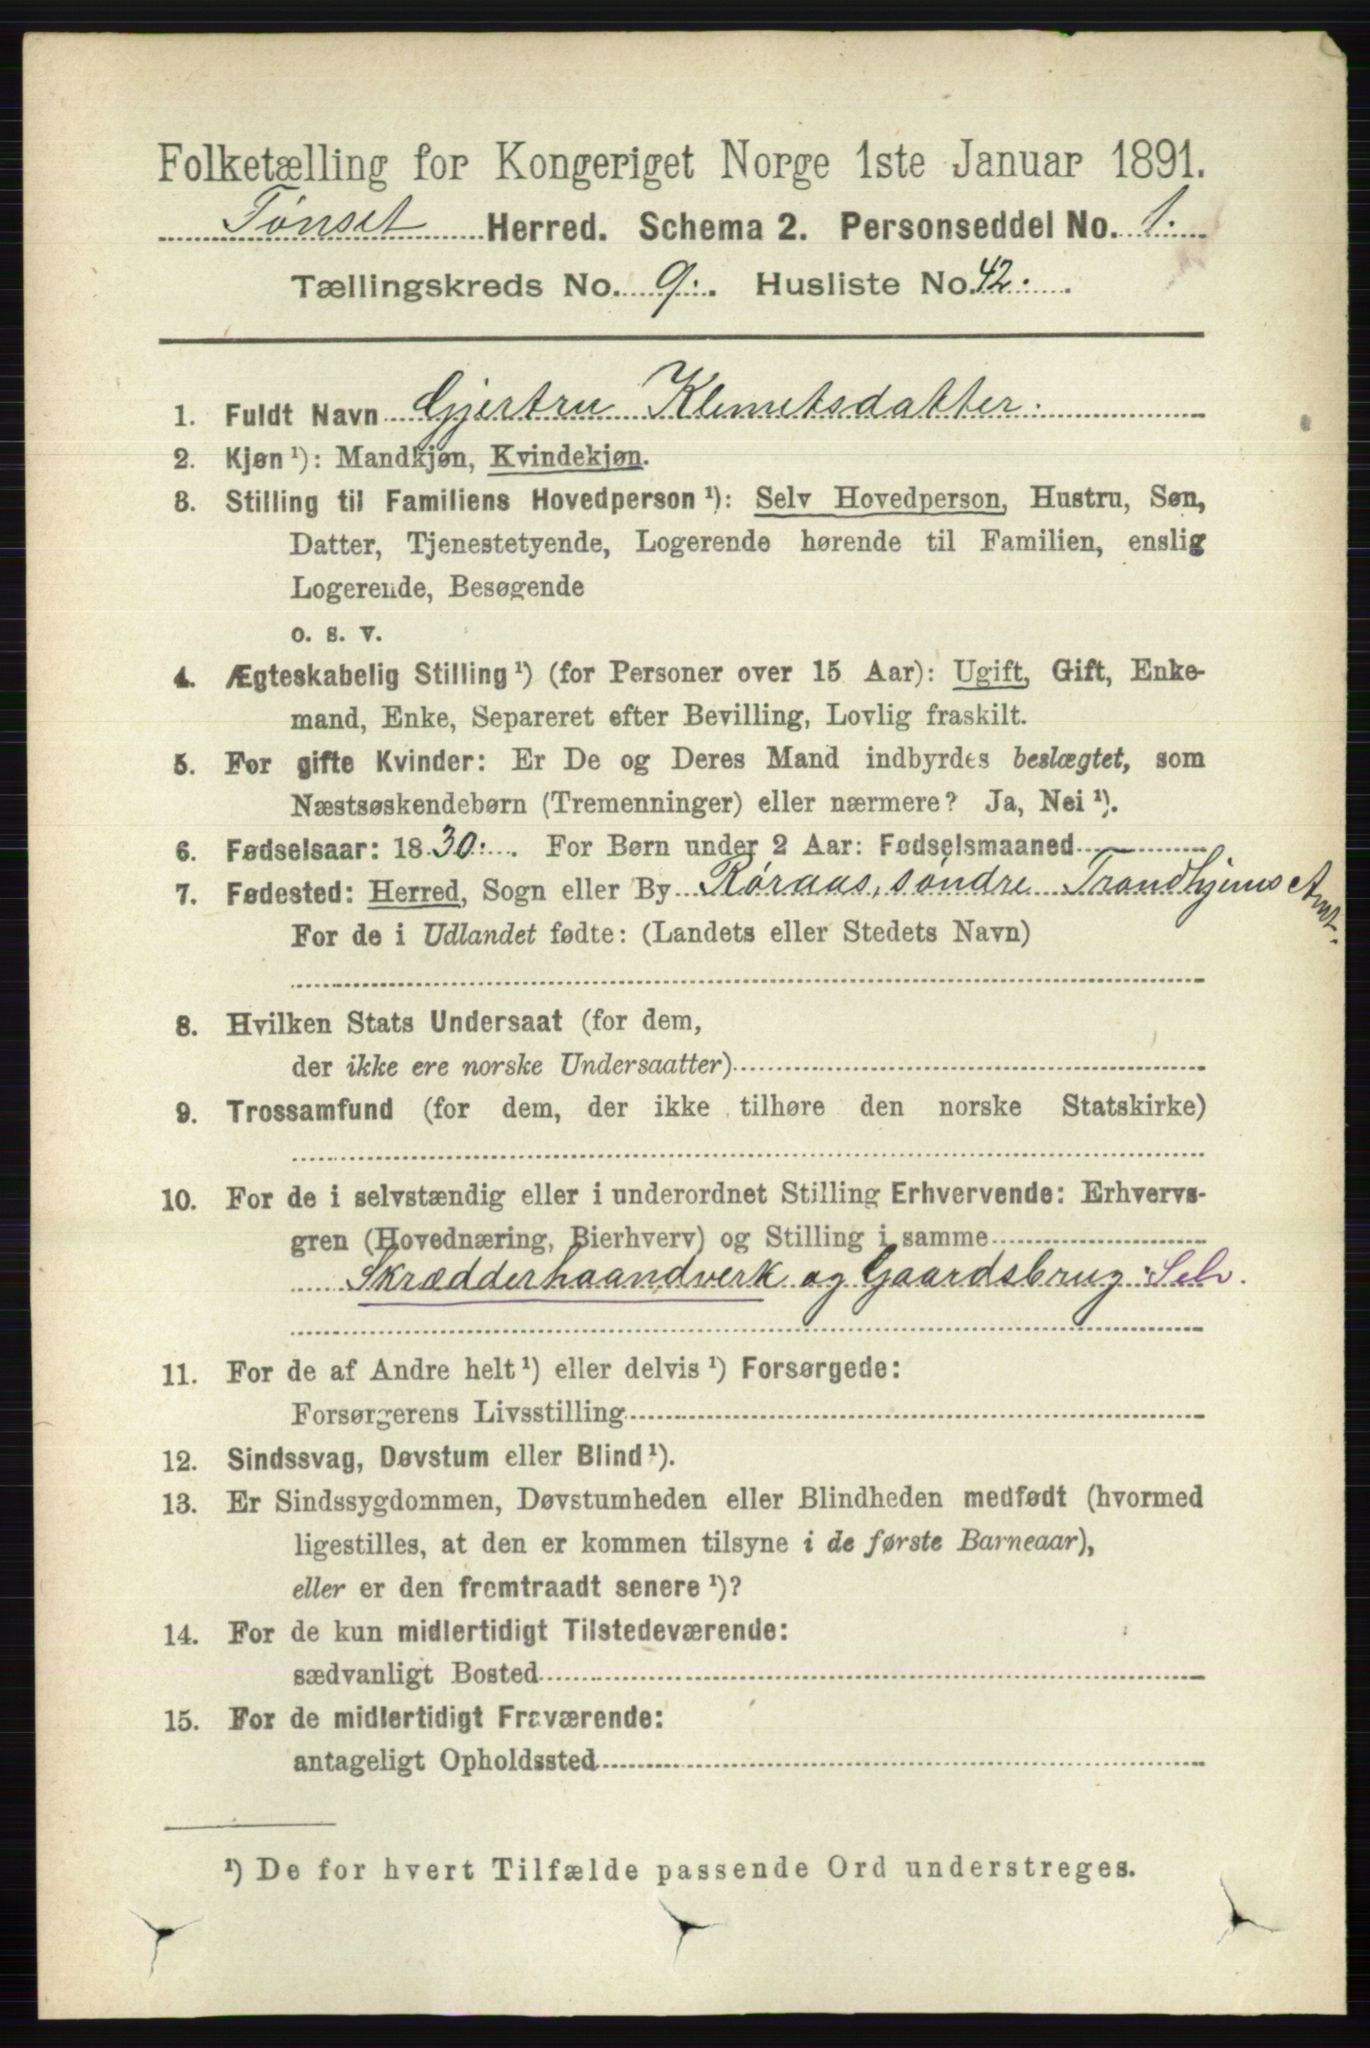 Folketælling for Kongeriget Norge 1ste Januar 1891.
Tønset Herred. Schema 2. Personseddel No. 1.
Tællingskreds No. 9. Husliste No. 42.
1. Fuldt Navn Gjertru Klemetsdatter.
2. Kjøn ¹): Mandkjøn, Kvindekjøn.
3. Stilling til Familiens Hovedperson ¹): Selv Hovedperson, Hustru, Søn,
Datter, Tjenestetyende, Logerende hørende til Familien, enslig
Logerende, Besøgende
o. s. v.
4. Ægteskabelig Stilling ¹) (for Personer over 15 Aar): Ugift, Gift, Enke-
mand, Enke, Separeret efter Bevilling, Lovlig fraskilt.
5. For gifte Kvinder: Er De og Deres Mand indbyrdes beslægtet, som
Næstsøskendebørn (Tremenninger) eller nærmere? Ja, Nei ¹).
6. Fødselsaar: 1830. For Børn under 2 Aar: Fødselsmaaned
7. Fødested: Herred, Sogn eller By Røraas, søndre Trondhjems Amt.
For de i Udlandet fødte: (Landets eller Stedets Navn)
8. Hvilken Stats Undersaat (for dem,
der ikke ere norske Undersaatter)
9. Trossamfund (for dem, der ikke tilhøre den norske Statskirke)
10. For de i selvstændig eller i underordnet Stilling Erhvervende: Erhvervs-
gren (Hovednæring, Bierhverv) og Stilling i samme
Skrædderhaandverk og Gaardsbrug. Selv.
11. For de af Andre helt ¹) eller delvis ¹) Forsørgede:
Forsørgerens Livsstilling
12. Sindssvag, Døvstum eller Blind ¹).
13. Er Sindssygdommen, Døvstumheden eller Blindheden medfødt (hvormed
ligestilles, at den er kommen tilsyne i de første Barneaar),
eller er den fremtraadt senere ¹)?
14. For de kun midlertidigt Tilstedeværende:
sædvanligt Bosted
15. For de midlertidigt Fraværende:
antageligt Opholdssted
¹) De for hvert Tilfælde passende Ord understreges.